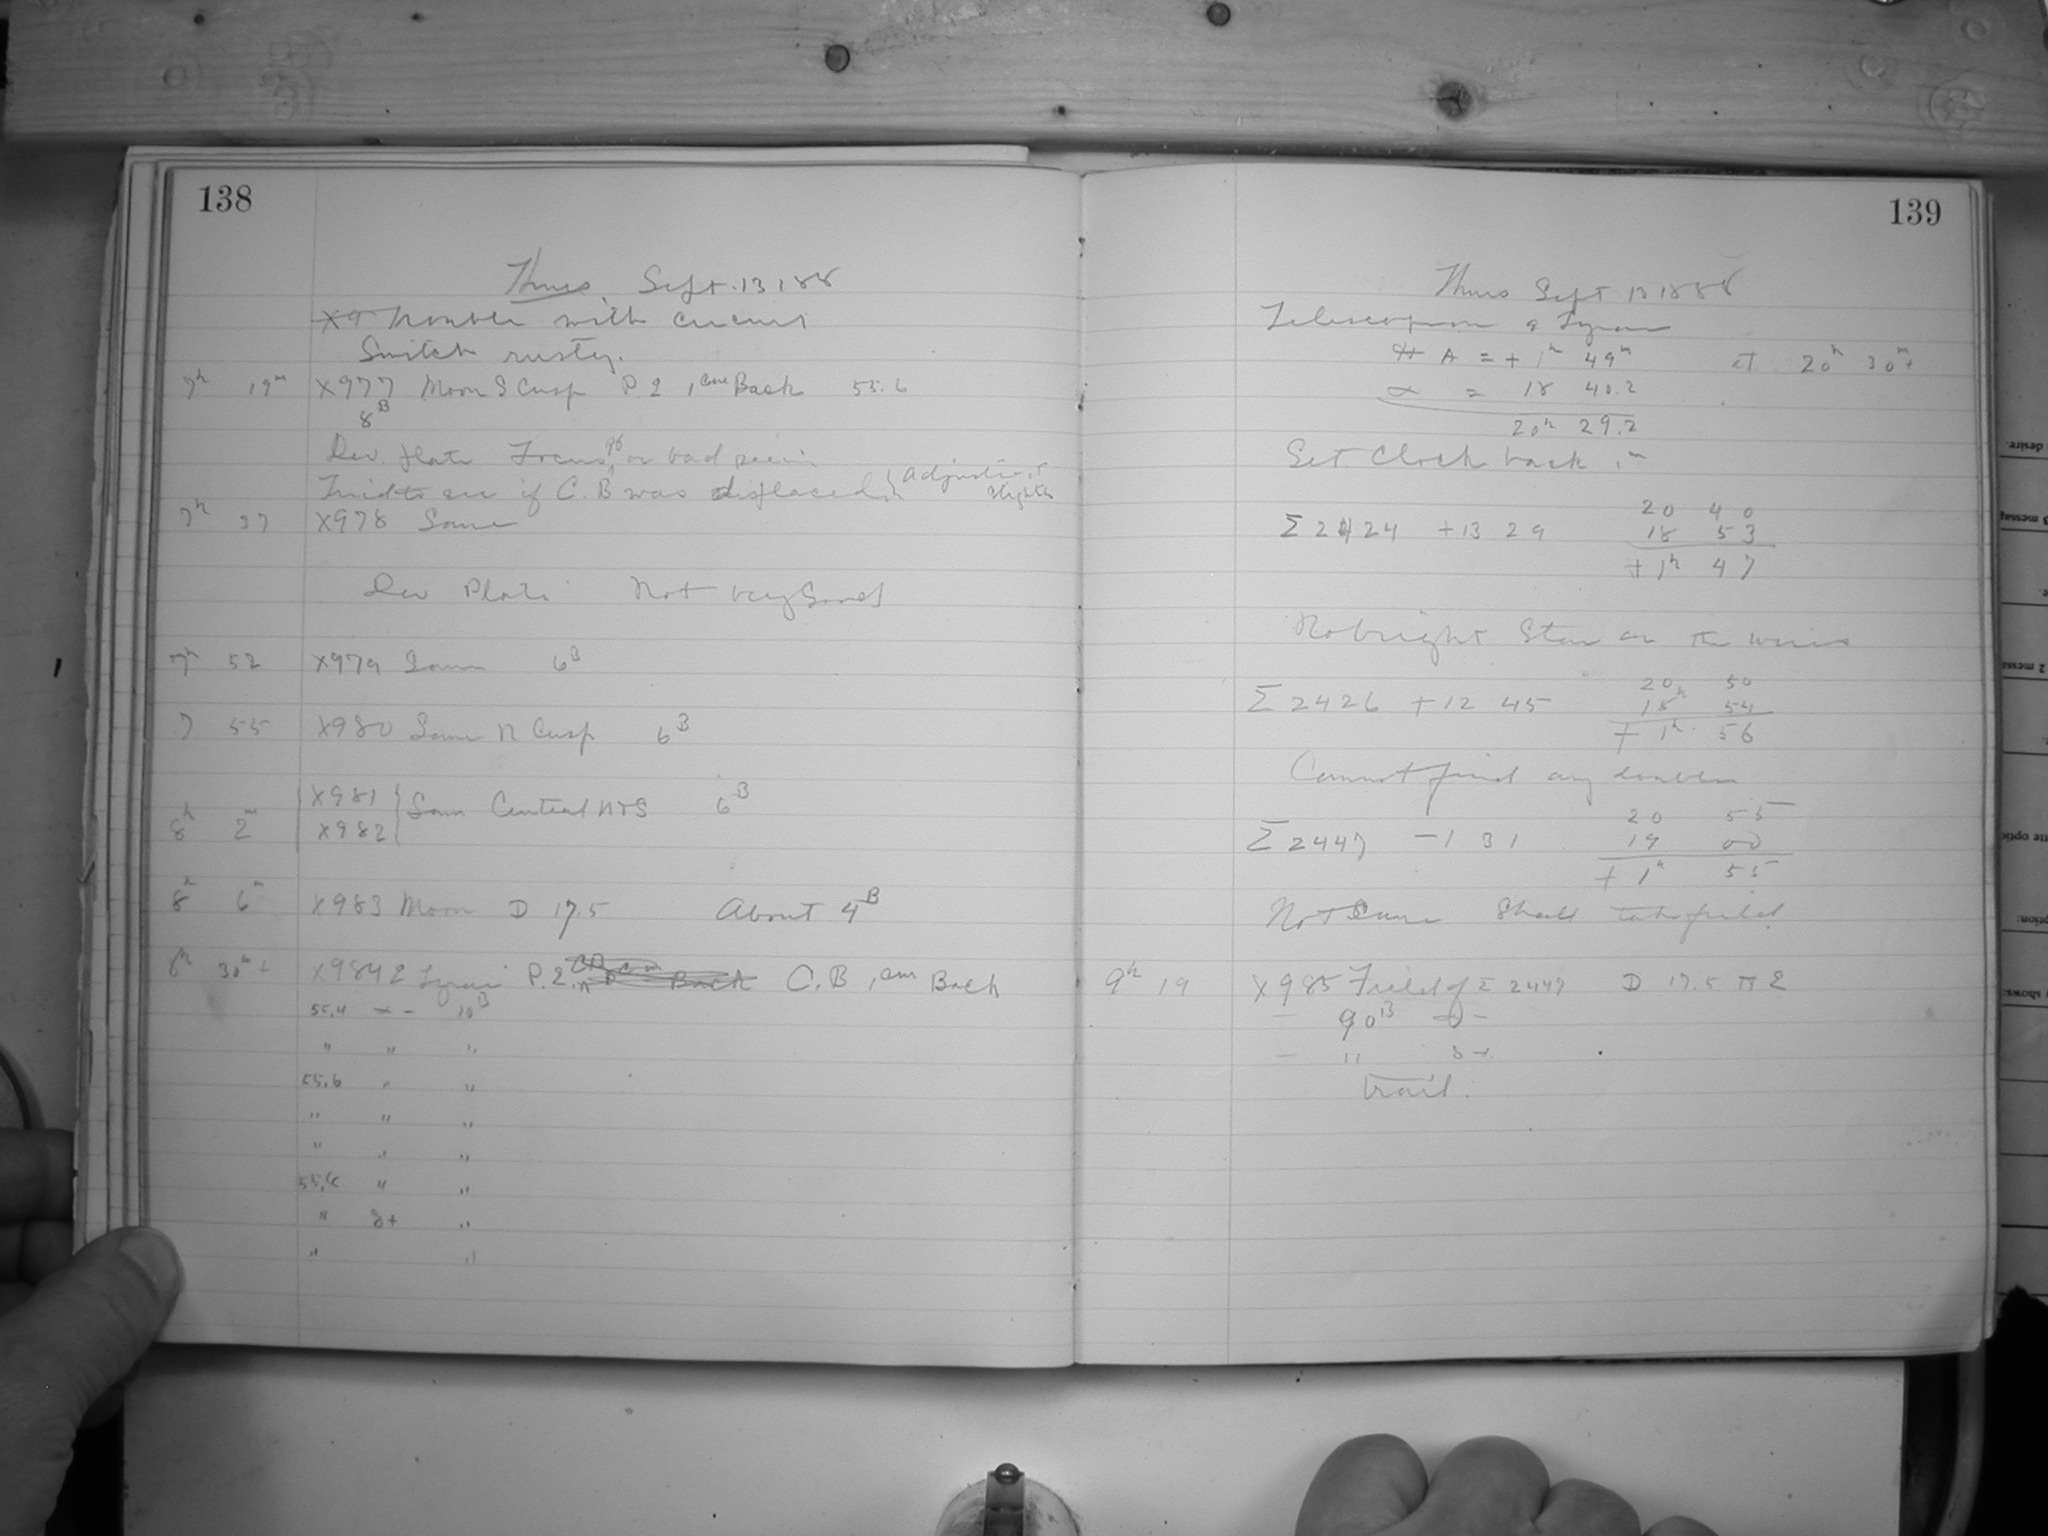 138
Thurs. Sept. 13 188
X9 Trouble with circuit
Switch rusty.
7h 19m X977 Moon S Cusp P.2 1cm Back 55.6
8B
Dev. plate Focus off or bad seeing
Tried to see if C.B was displaced Adjusted it slightly
7h 37 X978 Same
Dev Plate Not very Good
7h 52 X979 Same 6B
7 55 X980 Same N Cusp 6B
X981
8h 2m X982 Same Central N+S 6B
8h 6m X983 Moon D 17.5 About 4B
8h 30m+ X984 2 Lyrae P.2 C.B 1cm Back
55.4 α - 10B
" " "
55.6 " "
" " "
" " "
" "
" δ+ "
" "
139
Thurs Sept 13 1888
Telescope on α Lyrae
H A = + 1h 49m at 20h 30m+
α = 18 40.2
20h 29.2
Set Clock back 1m
Σ 2424 +13 29
20 40
18 53
+ 1h 47
No bright Star on the wires
Σ 2426 + 12 45
20 50
18h 54
+ 1h 56
Cannot find any double
Σ 2447 - 1 31
20 55
19 00
+ 1h 55
Not Sure Shall take field
9h 19 X985 Field of Σ 2447 D 17.5 π 2
- 90B δ -
- " δ +
trail.